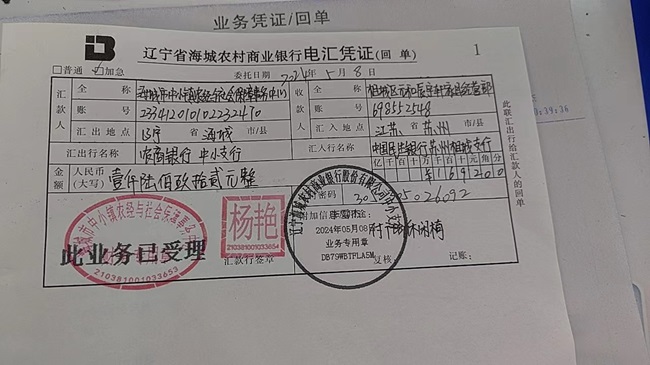 业务凭证/回单
辽宁省海城农村商业银行电汇凭证(回单) 1
□普通 ☑加急 委托日期 2024年5月8日
汇款人 全称 海城市中小镇农经与社会保障事务中心 收款人 全称
账号 233412010102232470 账号 698552548
汇出地点 辽宁省海城市/县 汇入地点 江苏省苏州市/县
汇出行名称 农商银行中小支行 汇入行名称 中国民生银行苏州相城支行
金额 人民币(大写) 壹仟陆佰玖拾贰元整 亿千百十万千百十元角分 ¥169200
密码 305305026092
附加信息
付 休闲椅
此业务已受理
海城市中小镇农经与社会保障事务中心
210381001033653
杨艳
210381001033654
汇款行签章
辽宁海城农村商业银行股份有限公司中小支行
2024年05月08日
业务专用章
DB79WBTFLASM
复核: 记账:
此联汇出行给汇款人的回单
:39:36